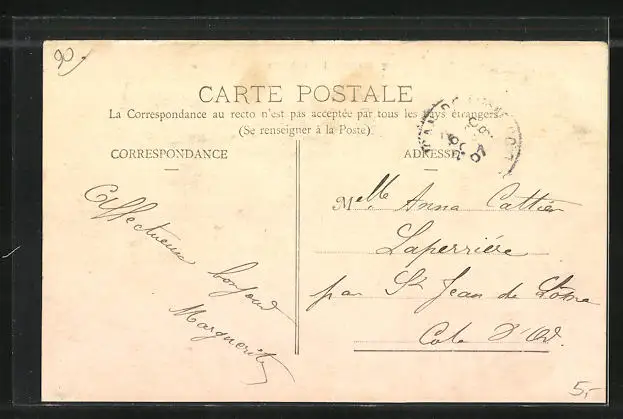 90
CARTE POSTALE
La Correspondance au recto n'est pas acceptée par tous les pays étrangers
(Se renseigner à la Poste)
CORRESPONDANCE
ADRESSE
Affectueux bonjour
Marguerite
Melle Anna Cattier
Laperrière
par St Jean de Losne
Cote d'Or.
5,-